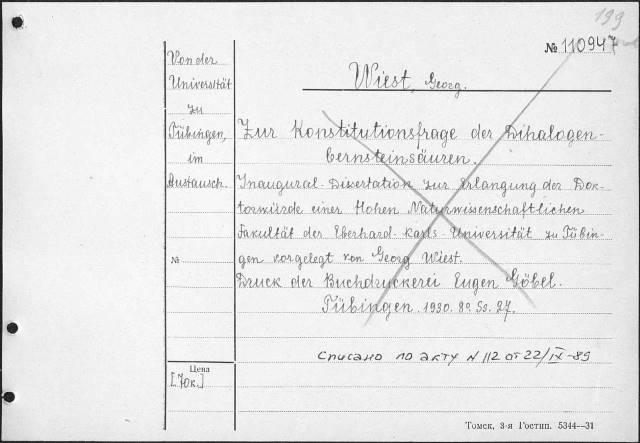 199
№ 110947
Von der
Universität
zu
Tübingen,
im
Austausch.
№
Цена
[70к.]
Wiest, Georg.
Zur Konstitutionsfrage der Dihalogen-
bernsteinsäuren.
Inaugural-Dissertation zur Erlangung der Dok-
torwürde einer Hohen Naturwissenschaftlichen
Fakultät der Eberhard-Karls-Universität zu Tübin-
gen vorgelegt von Georg Wiest.
Druck der Buchdruckerei Eugen Göbel.
Tübingen. 1930. 8º. Ss. 27.
Списано по акту N 112 от 22/IX-89
Томск, 3-я Гостип. 5344—31